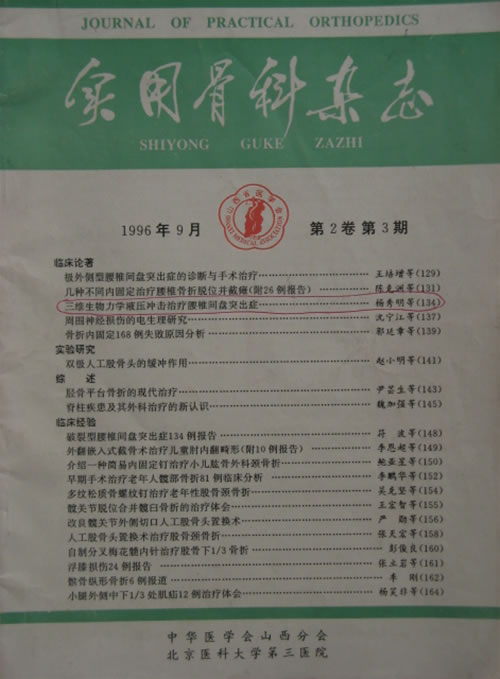 JOURNAL OF PRACTICAL ORTHOPEDICS
实用骨科杂志
SHIYONG GUKE ZAZHI
1996年9月 第2卷第3期
临床论著
极外侧型腰椎间盘突出症的诊断与手术治疗 王培增等(129)
几种不同内固定治疗腰椎骨折脱位并截瘫(附26例报告) 陈克洲等(131)
三维生物力学液压冲击治疗腰椎间盘突出症 杨秀明等(134)
周围神经损伤的电生理研究 沈宁江等(137)
骨折内固定168例失败原因分析 郭延章等(139)
实验研究
双极人工股骨头的缓冲作用 赵小明等(141)
综 述
胫骨平台骨折的现代治疗 尹芸生等(143)
脊柱疾患及其外科治疗的新认识 魏加强等(145)
临床经验
破裂型腰椎间盘突出症134例报告 符 波等(148)
外翻嵌入式截骨术治疗儿童肘内翻畸形(附10例报告) 李恩超等(149)
介绍一种简易内固定钉治疗小儿肱骨外科颈骨折 鲍亚星等(150)
早期手术治疗老年人髋部骨折81例临床分析 李鹏华等(152)
多纹松质骨螺纹钉治疗老年性股骨颈骨折 吴克坚等(154)
髋关节脱位合并髋臼骨折的治疗体会 王宏智等(155)
改良髋关节外侧切口人工股骨头置换术 严 勋等(156)
人工股骨头置换术治疗股骨颈骨折 张天宏等(158)
自制分叉梅花髓内针治疗股骨下1/3骨折 彭俊良(160)
浮膝损伤24例报告 张立岩等(161)
髌骨纵形骨折6例报道 李 刚(162)
小腿外侧中下1/3处肌疝12例治疗体会 杨笑非等(164)
中华医学会山西分会
北京医科大学第三医院